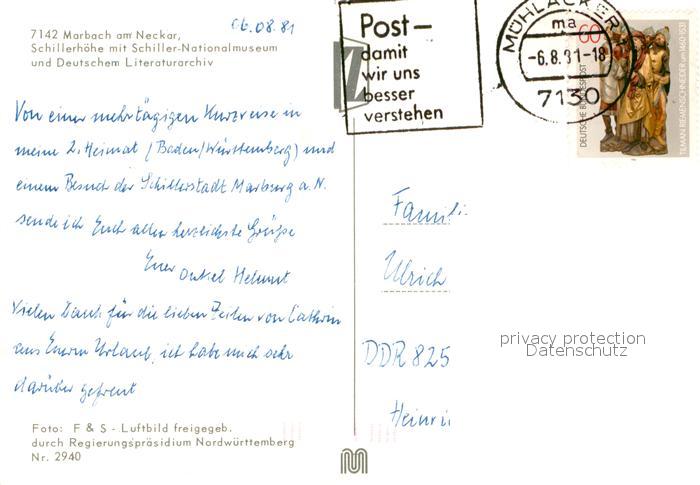 7142 Marbach am Neckar,
Schillerhöhe mit Schiller-Nationalmuseum
und Deutschem Literaturarchiv
06.08.81
Von einer mehrtägigen Kurzreise in
meine 2. Heimat (Baden/Württemberg) und
einem Besuch der Schillerstadt Marbach a. N.
sende ich Euch allen herzlichste Grüße
Euer Onkel Helmut
Vielen Dank für die lieben Zeilen von Cathrin
aus Eurem Urlaub, ich habe mich sehr
darüber gefreut
Foto: F & S - Luftbild freigegeb.
durch Regierungspräsidium Nordwürttemberg
Nr. 2940
Post–
damit
wir uns
besser
verstehen
MÜHLACKER
ma
-6.8.81-18
7130
60
DEUTSCHE BUNDESPOST
TILMAN RIEMENSCHNEIDER um 1460-1531
Famili
Ulrich
DDR 825
Heinri
privacy protection
Datenschutz